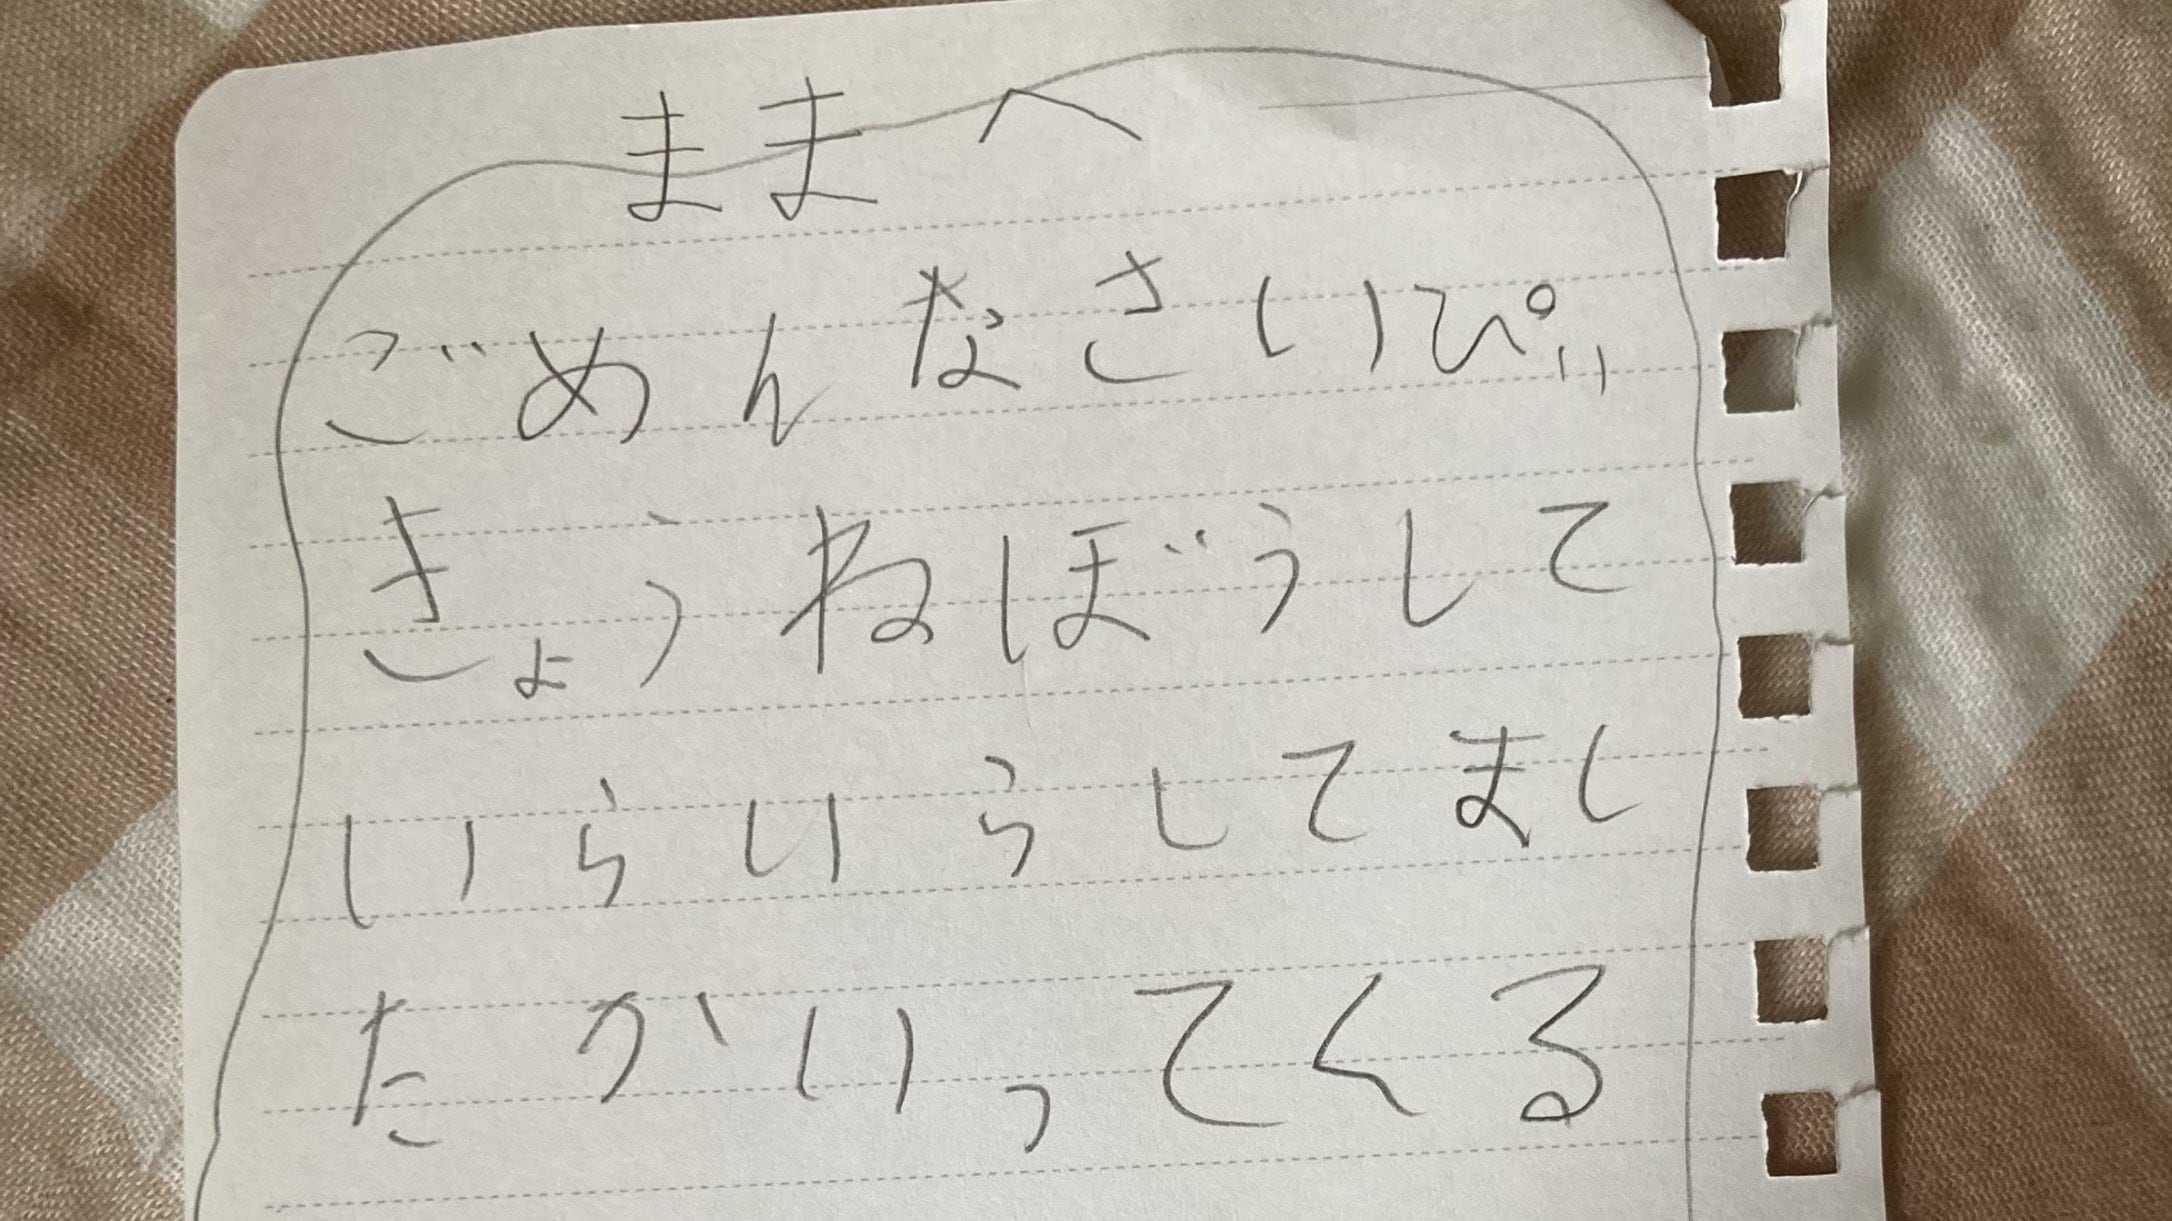 ままへ
ごめんなさいぴぃ
きょうねぼうして
いらいらしてまし
たがいってくる